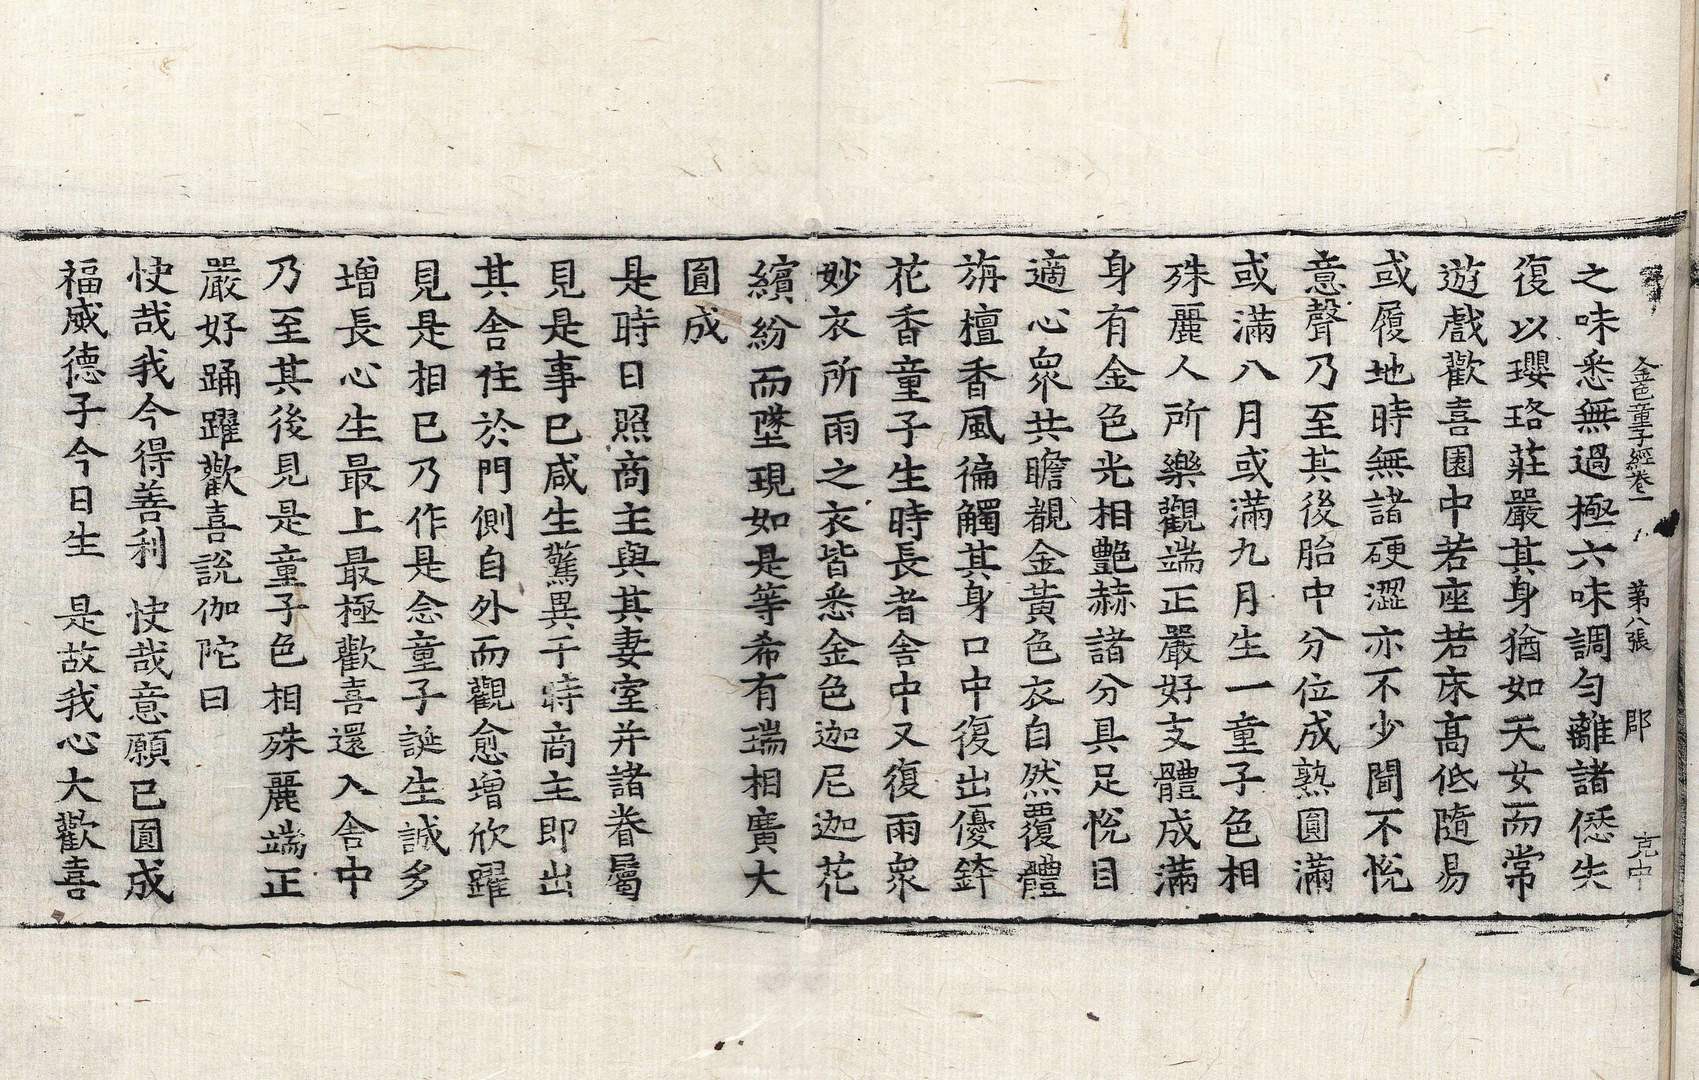 金色童子經卷一 第八張 郡 克中
之味悉無過極六味調勻離諸愆失
復以瓔珞莊嚴其身猶如天女而常
遊戲歡喜園中若座若床髙低隨易
或履地時無諸硬澀亦不少聞不悅
意聲乃至其後胎中分位成熟圓滿
或滿八月或滿九月生一童子色相
殊麗人所樂觀端正嚴好支體成滿
身有金色光相艷赫諸分具足悅目
適心衆共瞻覩金黃色衣自然覆體
旃檀香風徧觸其身口中復出優鉢
花香童子生時長者舍中又復雨衆
妙衣所雨之衣皆悉金色迦尼迦花
繽紛而墜現如是等希有瑞相廣大
圓成
是時日照商主與其妻室并諸眷屬
見是事已咸生驚異于時商主即出
其舍住於門側自外而觀愈增欣躍
見是相已乃作是念童子誕生誠多
增長心生最上最極歡喜還入舍中
乃至其後見是童子色相殊麗端正
嚴好踊躍歡喜說伽陀曰
快哉我今得善利 快哉意願已圓成
福威德子今日生 是故我心大歡喜